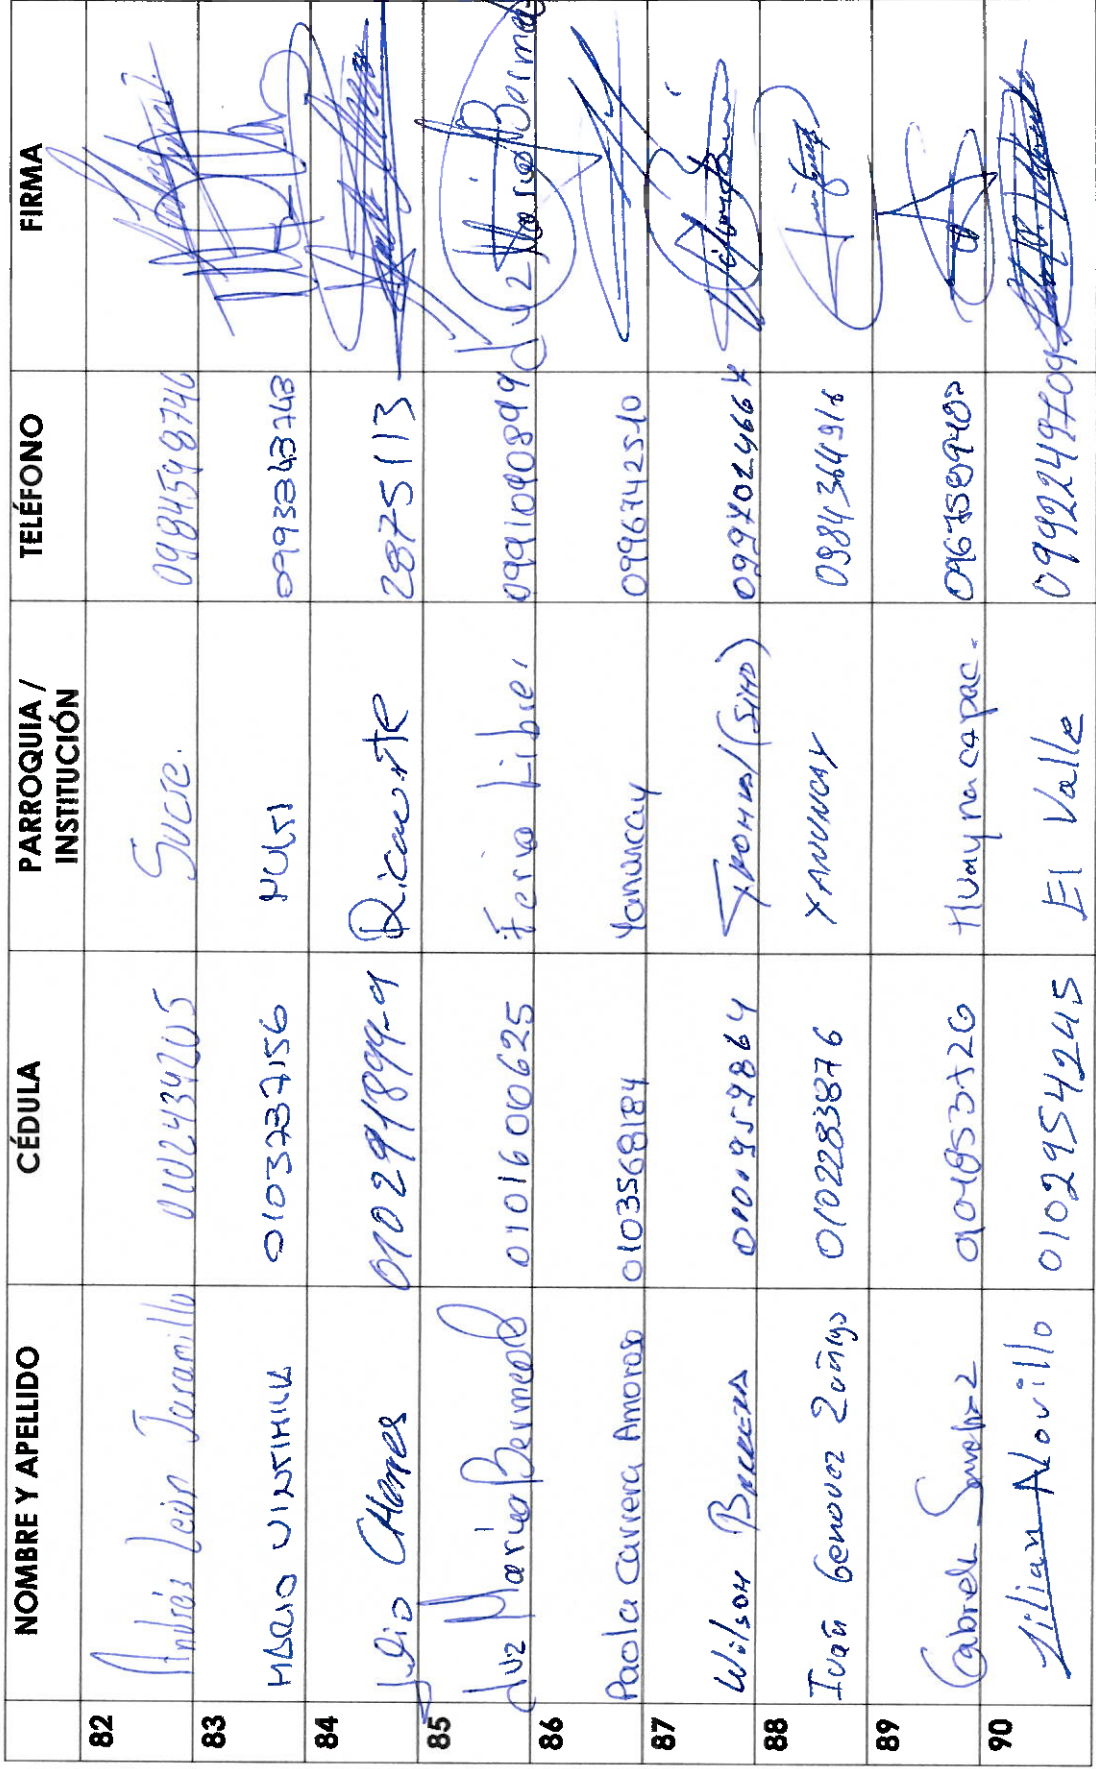 NOMBRE Y APELLIDO CÉDULA PARROQUIA / INSTITUCIÓN TELÉFONO FIRMA
82 Andrés León Jaramillo 0102434205 Sucre. 0984598746
83 MARIO VINTIMILLA 0103737156 0993843743
84 Julio 010291899-9 Ricaurte 2875113
85 Luz María Bermeo 0101600625 Feria Libre. 0991090899 Luz María Bermeo
86 Paola Carrera Amoroso 0103568184 Yanuncay 0996742510
87 Wilson 0101959864 (SIMD) 0997024664
88 Iván Genovez Zúñiga 0102283876 YANUNCAY 0984364916
89 Gabriela Huaynacapac. 0967589487
90 Lilian Novillo 0102954245 El Valle 0992249709